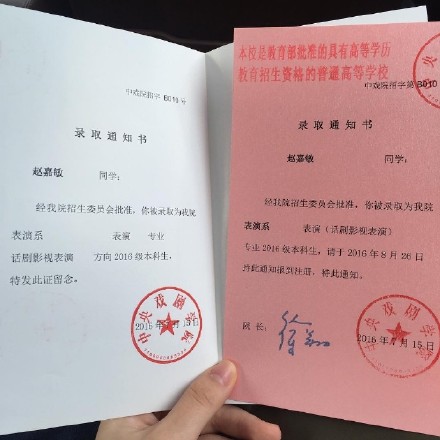 中戏院招字 B010 号
录取通知书
赵嘉敏 同学：
经我院招生委员会批准，你被录取为我院
表演系 表演 专业
话剧影视表演 方向2016级本科生，
特发此证留念。
中央戏剧学院
2016年7月15日
本校是教育部批准的具有高等学历
教育招生资格的普通高等学校
中戏院招字第 B010
录取通知书
赵嘉敏 同学：
经我院招生委员会批准，你被录取为我院
表演系 表演（话剧影视表演）
专业2016级本科生，请于2016年8月26日
持此通知报到注册，特此通知。
院长：
中央戏剧学院
2016年7月15日